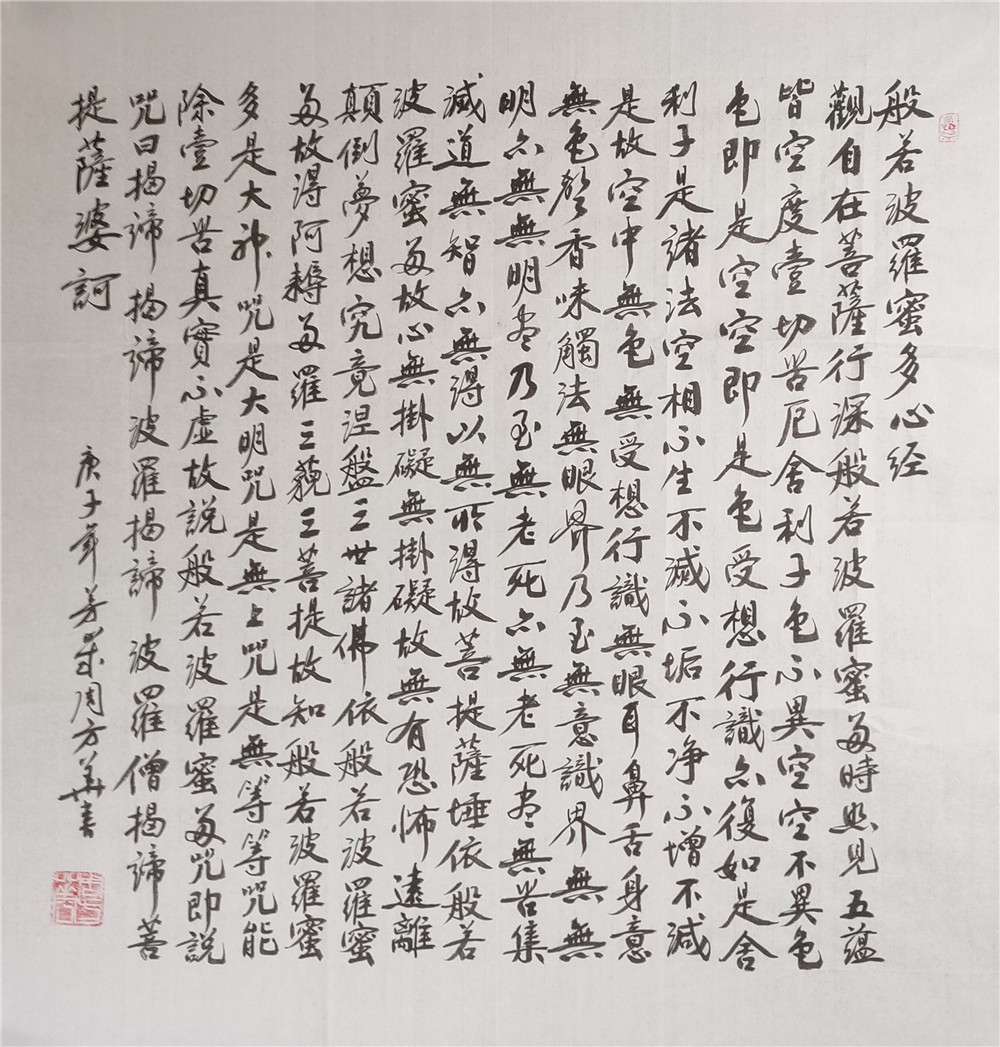 般若波羅蜜多心经
觀自在菩薩行深般若波羅蜜多時照見五蕴
皆空度壹切苦厄舍利子色不異空空不異色
色即是空空即是色受想行識亦復如是舍
利子是諸法空相不生不滅不垢不净不增不減
是故空中無色無受想行識無眼耳鼻舌身意
無色聲香味觸法無眼界乃至無意識界無無
明亦無無明盡乃至無老死亦無老死盡無苦集
滅道無智亦無得以無所得故菩提薩埵依般若
波羅蜜多故心無掛礙無掛礙故無有恐怖遠離
顛倒夢想究竟涅盤三世諸佛依般若波羅蜜
多故得阿耨多羅三藐三菩提故知般若波羅蜜
多是大神咒是大明咒是無上咒是無等等咒能
除壹切苦真實不虚故說般若波羅蜜多咒即說
咒曰揭諦揭諦波羅揭諦波羅僧揭諦菩
提薩婆訶
庚子年 周方華書